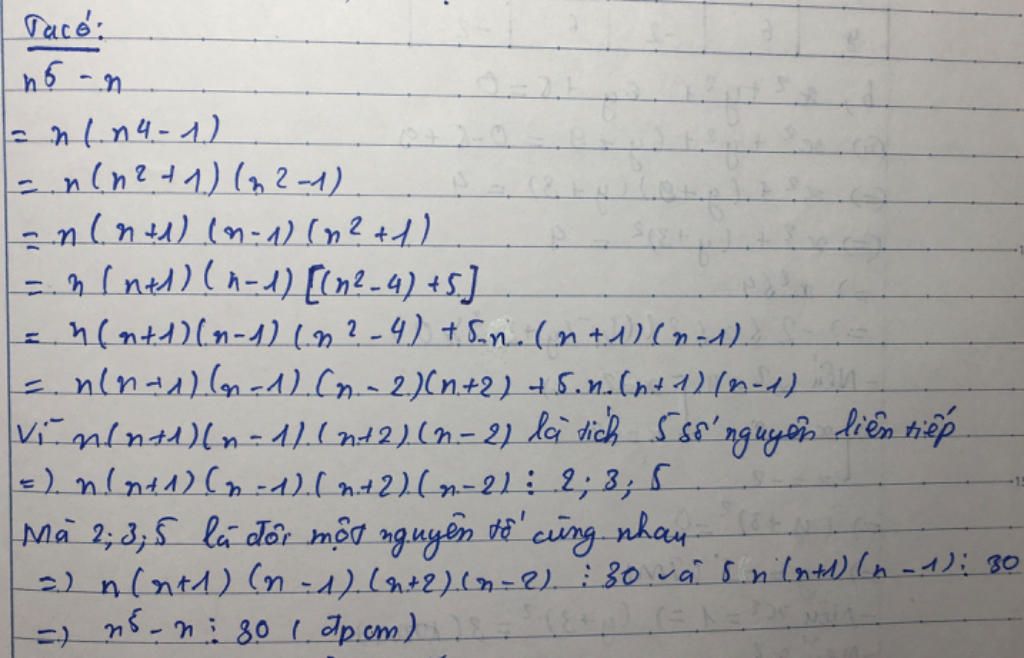 Ta có:
n⁵ - n
= n(n⁴ - 1)
= n(n² + 1)(n² - 1)
= n(n+1)(n-1)(n² + 1)
= n(n+1)(n-1)[(n² - 4) + 5]
= n(n+1)(n-1)(n² - 4) + 5.n.(n+1)(n-1)
= n(n+1)(n-1).(n-2)(n+2) + 5.n.(n+1)(n-1)
Vì n(n+1)(n-1).(n+2).(n-2) là tích 5 số nguyên liên tiếp
=) n(n+1)(n-1).(n+2)(n-2) ⋮ 2; 3; 5
Mà 2; 3; 5 là đôi một nguyên tố cùng nhau
=) n(n+1)(n-1).(n+2)(n-2) ⋮ 30 và 5.n(n+1)(n-1) ⋮ 30
=) n⁵ - n ⋮ 30 (đpcm)